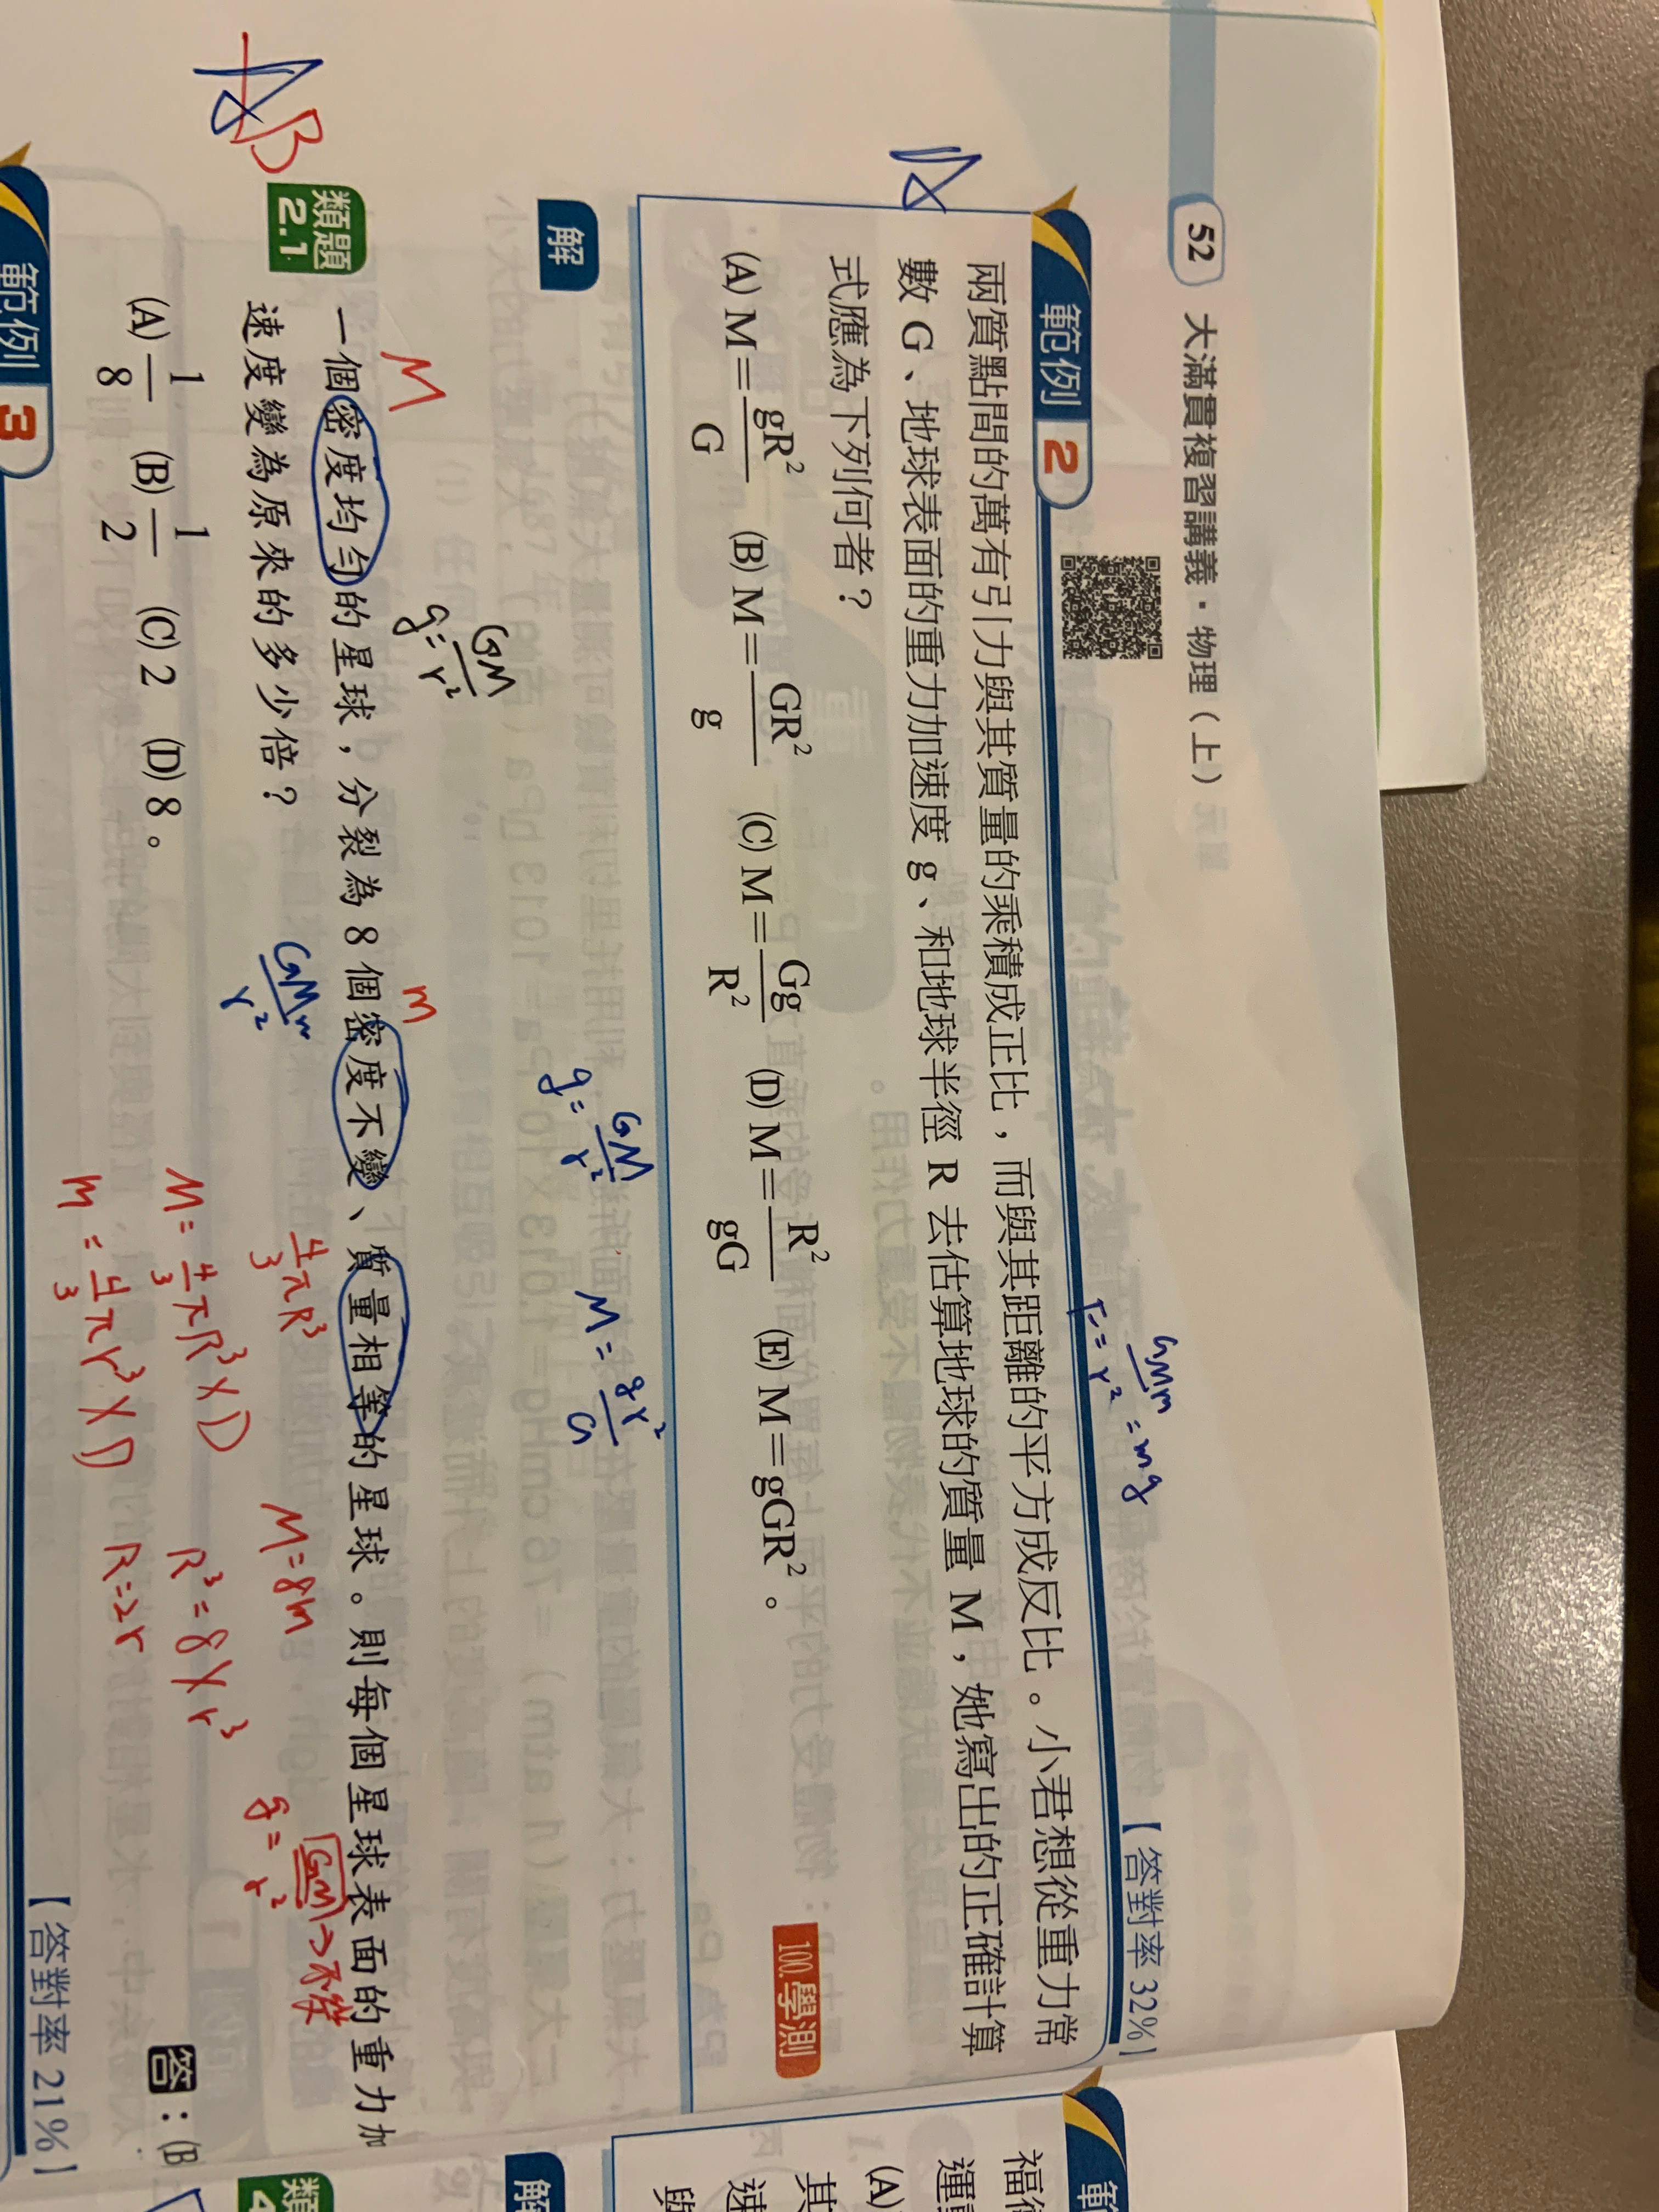 52 大滿貫複習講義・物理(上)
範例 2
【答對率 32%】
F = GMm/r² = mg
兩質點間的萬有引力與其質量的乘積成正比，而與其距離的平方成反比。小君想從重力常
數 G、地球表面的重力加速度 g、和地球半徑 R 去估算地球的質量 M，她寫出的正確計算
式應為下列何者？
100.學測
(A) M=gR²/G (B) M=GR²/g (C) M=Gg/R² (D) M=R²/gG (E) M=gGR²。
解
g = GM/r² M = gr²/G
g = GM/r²
M m
類題 2.1
一個密度均勻的星球，分裂為 8 個密度不變、質量相等的星球。則每個星球表面的重力加
速度變為原來的多少倍？
GMm/r² 4/3 πR³ M=8m g = GM/r² →不變
(A) 1/8 (B) 1/2 (C) 2 (D) 8。
M = 4/3 πR³×D R³=8×r³
m = 4/3 πr³×D R=2r
答：(B
B
範例 3
【答對率 21%】
解
(A)
其
速
與
類